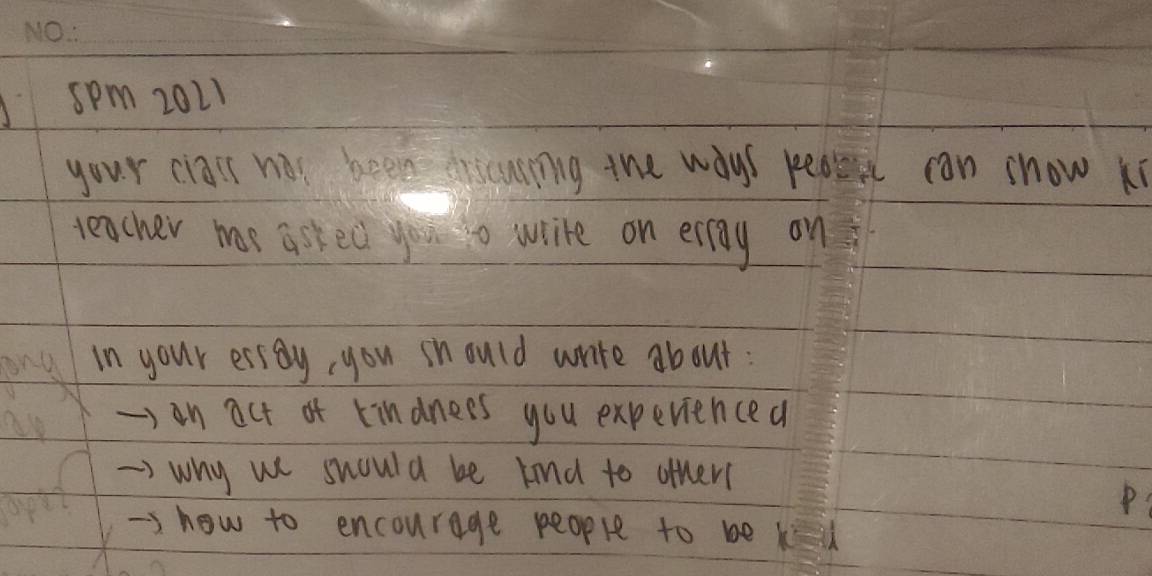 NO.:
SPM 2021
your class has been discussing the ways people can show
teacher has asked you to write on essay on
In your essay, you should write about:
→ an act of kindness you experienced
→ why we should be kind to others
→ how to encourage people to be kind